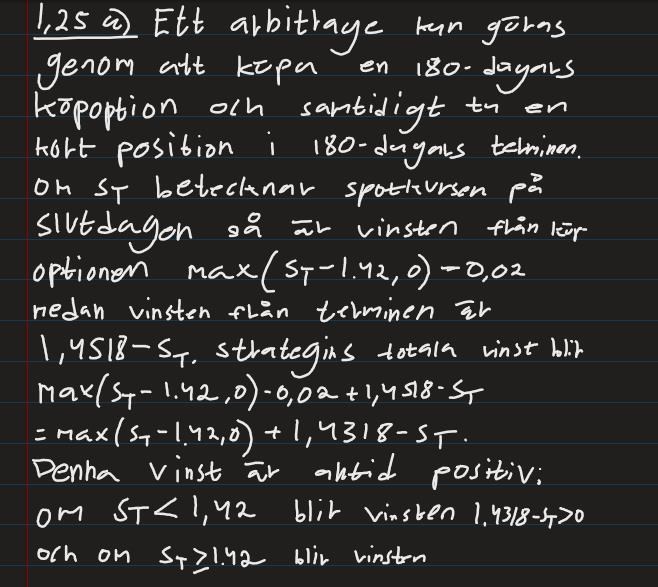 1,25 a) Ett arbitrage kan göras
genom att köpa en 180-dagars
köpoption och samtidigt ta en
kort position i 180-dagars terminen.
om S_T betecknar spotkursen på
slutdagen så är vinsten från köp-
optionen max(S_T-1.42,0)-0,02
medan vinsten från terminen är
1,4518-S_T. strategins totala vinst blir
max(S_T-1.42,0)-0,02+1,4518-S_T
=max(S_T-1.42,0)+1,4318-S_T.
Denna vinst är alltid positiv;
om S_T<1,42 blir vinsten 1,4318-S_T>0
och om S_T≥1.42 blir vinsten